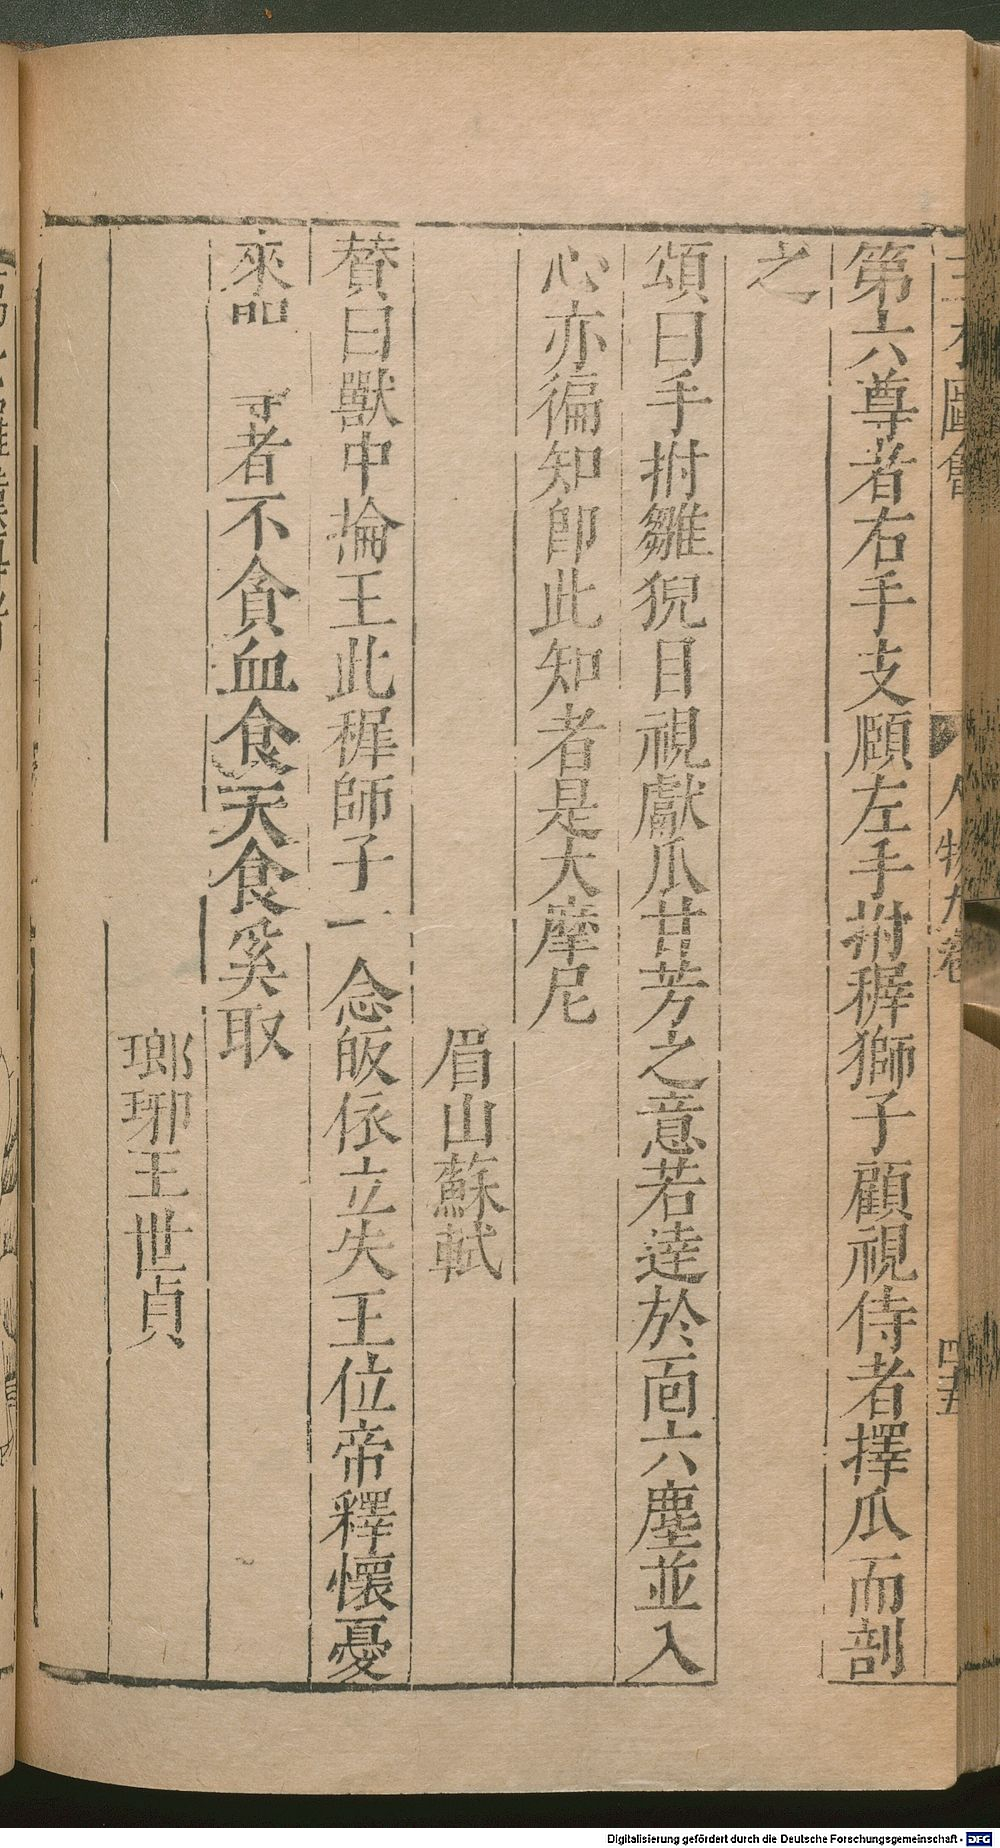 第六尊者右手支頤左手拊穉獅子顧視侍者擇瓜而剖
之
頌曰手拊雛猊目視獻瓜甘芳之意若達於面六塵並入
心亦徧知卽此知者是大摩尼
眉山蘇軾
賛曰獸中掄王此穉師子一念皈依立失王位帝釋懷憂
來 者不貪血食天食奚取
瑯琊王世貞
人物九卷
四五
Digitalisierung gefördert durch die Deutsche Forschungsgemeinschaft - DFG